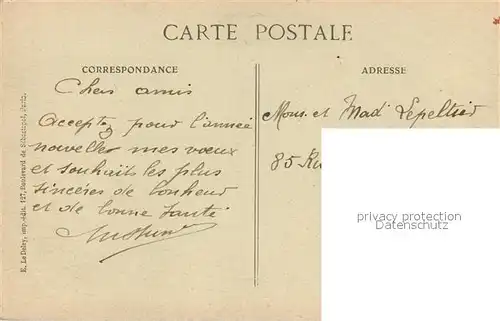 CARTE POSTALE
CORRESPONDANCE
ADRESSE
Chers amis
Acceptez pour l'année
nouvelle mes vœux
et souhaits les plus
sincères de bonheur
et de bonne santé
Mons. et Mad. Lepeltier
85 Ru
privacy protection
Datenschutz
E. Le Deley, imp.-édit. 127, Boulevard de Sébastopol, Paris.